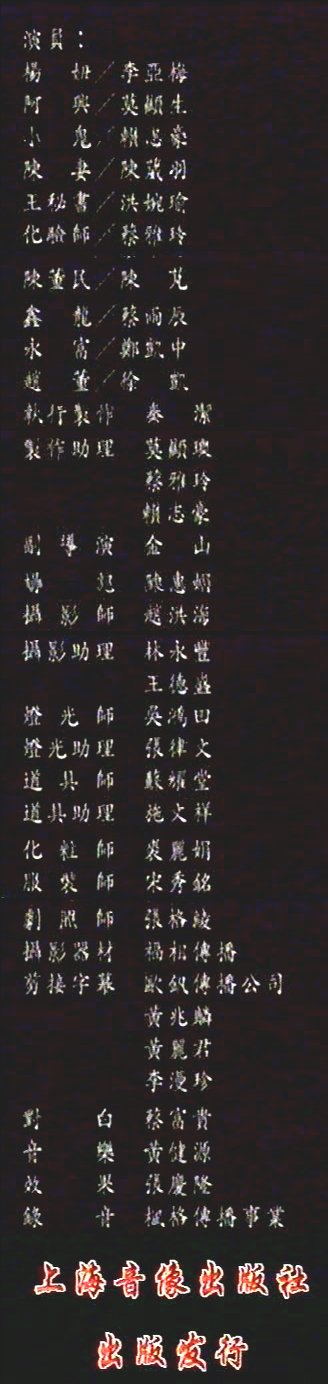 演員：
楊 妞／李亞梅
阿 興／莫顯生
小 鬼／賴志豪
陳 妻／陳葳羽
王秘書／洪婉瑜
化驗師／蔡雅玲
陳董民／陳 芃
鑫 龍／蔡雨辰
永 富／鄭凱中
趙 董／徐 凱
執行製作 秦 潔
製作助理 莫顯瓊
蔡雅玲
賴志豪
副導演 金 山
場 記 陳惠娟
攝影師 趙洪海
攝影助理 林永豐
王德
燈光師 吳鴻田
燈光助理 張律文
道具師 蘇耀堂
道具助理 施文祥
化粧師 裘麗娟
服裝師 宋秀銘
劇照師 張格綾
攝影器材 福相傳播
剪接字幕 傳播公司
黃兆麟
黃麗君
李漫珍
對 白 蔡富貴
音 樂 黃健源
效 果 張慶隆
錄 音 楓格傳播事業
上海音像出版社
出版发行